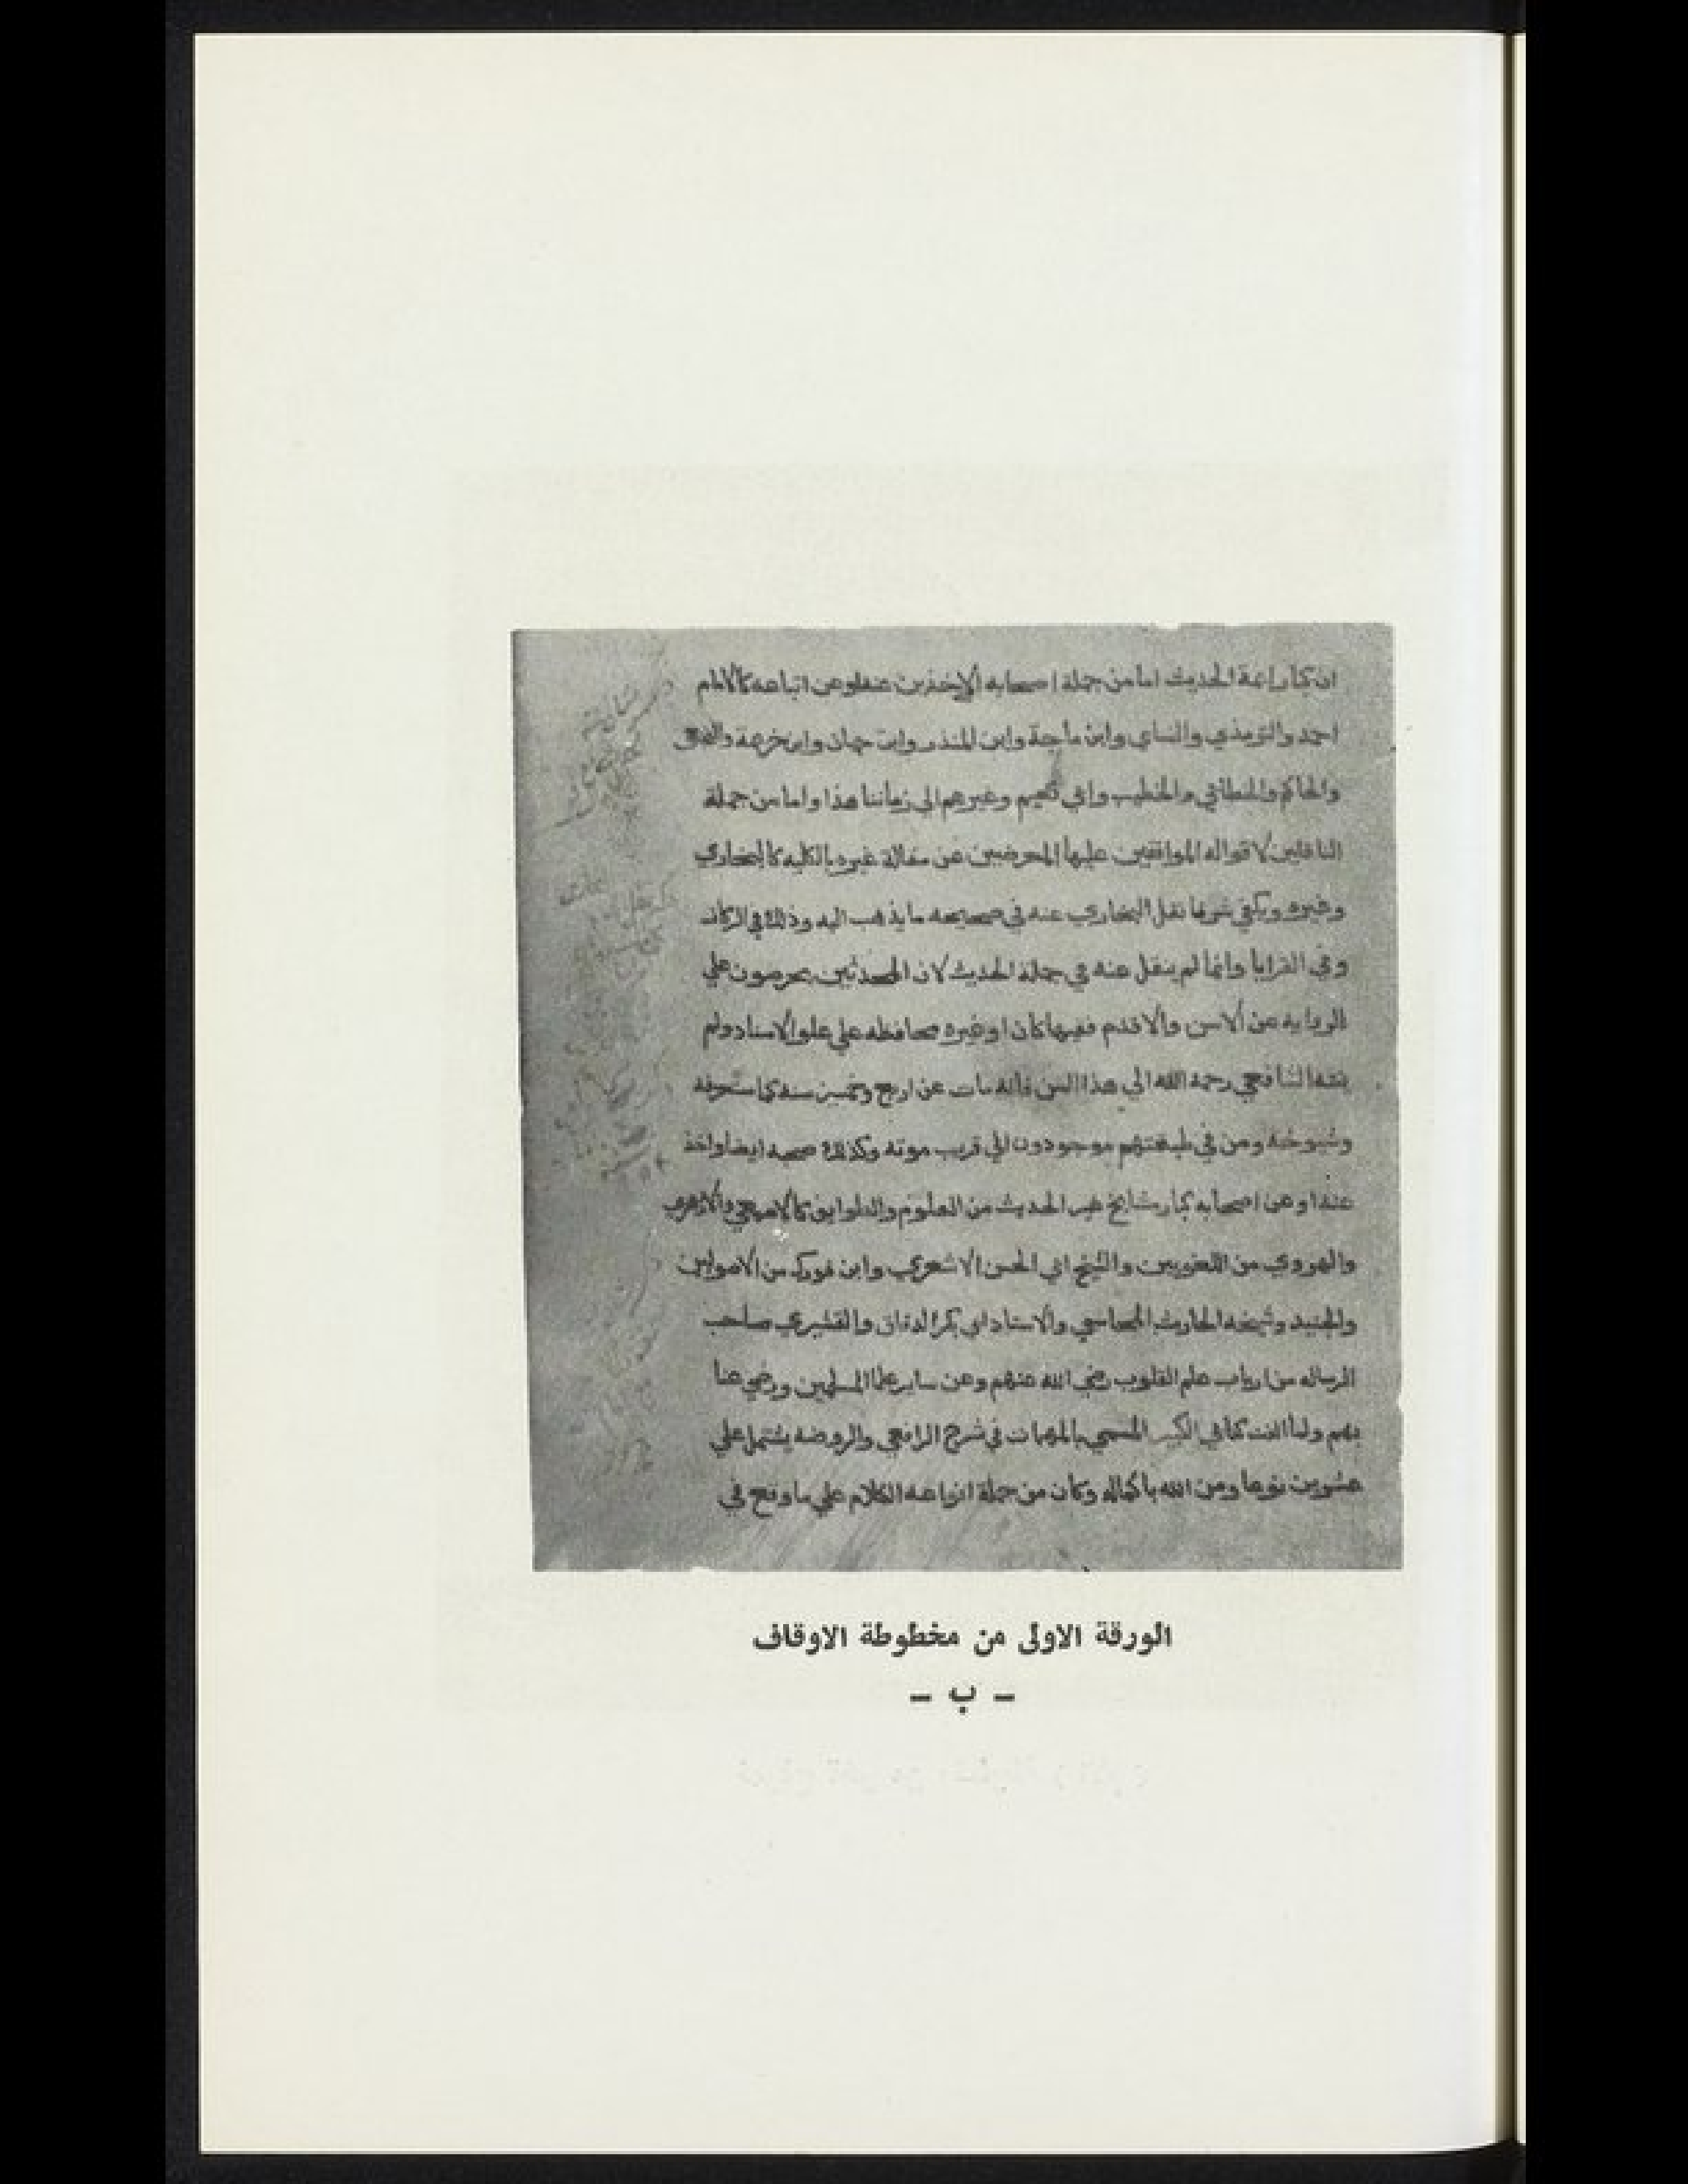 ان كبار ايمة الحديث اما من جملة اصحابه الاخذين عنه او عن اتباعه كالامام
احمد والترمذي والنساي وابن ماجة وابن المنذر وابن حبان وابن خزيمة والبيهقي
والحاكم والخطابي والخطيب وابي نعيم وغيرهم الي زماننا هذا واما من جملة
الناقلين لاقواله الموافقين عليها المعرضين عن مقالة غيره بالكليه كالبخاري
وغيره ويكفي شرفا نقل البخاري عنه في صحيحه ما يذهب اليه وذلك في الركاز
وفي العرايا وانما لم ينقل عنه في جملة الحديث لان المحدثين يحرصون علي
الروايه عن الاسن والاقدم فيها كان او غيره محافظه علي علو الاسناد ولم
ينته الشافعي رحمه الله الي هذا السن فانه مات عن اربع وخمسين سنه كما ستعرفه
وشيوخه ومن في طبقتهم موجودون الي قريب موته وكذلك صحبه ايضا واخذ
عنه او عن اصحابه كبار مشايخ غير الحديث من العلوم والطوايف كالاصمعي والازهري
والهروي من اللغويين والشيخ ابي الحسن الاشعري وابن فورك من الاصوليين
والجنيد وشيخه الحارث المحاسبي والاستاد ابي بكر الدقاق والقشيري صاحب
الرساله من ارباب علم القلوب رضي الله عنهم وعن ساير علما المسلمين ورضي عنا
بهم ولما الفت كتابي الكبير المسمي بالمهمات في شرح الرافعي والروضه يشتمل علي
عشرين نوعا ومن الله باكماله وكان من جملة انواعه الكلام علي ما وقع في
الورقة الاولى من مخطوطة الاوقاف
- ب -